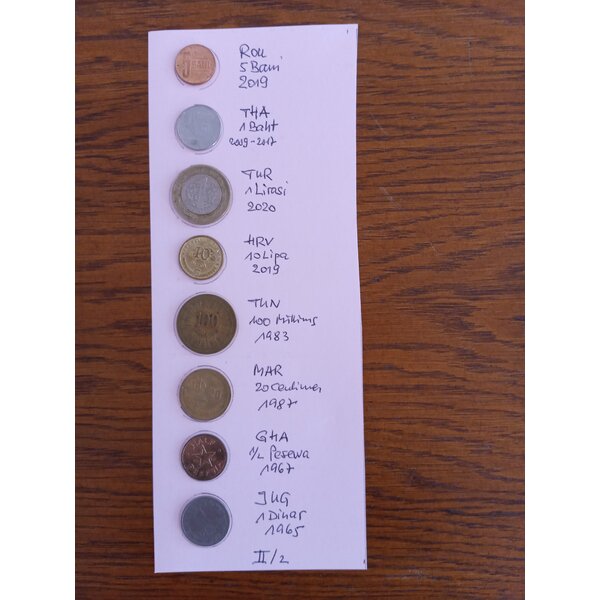 5
ROU
5 Bani
2019
THA
1 Baht
2009-2017
TUR
1 Lirasi
2020
10
HRV
10 Lipa
2019
100
TUN
100 Millims
1983
MAR
20 Centimes
1987
HALF
GHA
1/2 Pesewa
1967
JUG
1 Dinar
1965
II/2